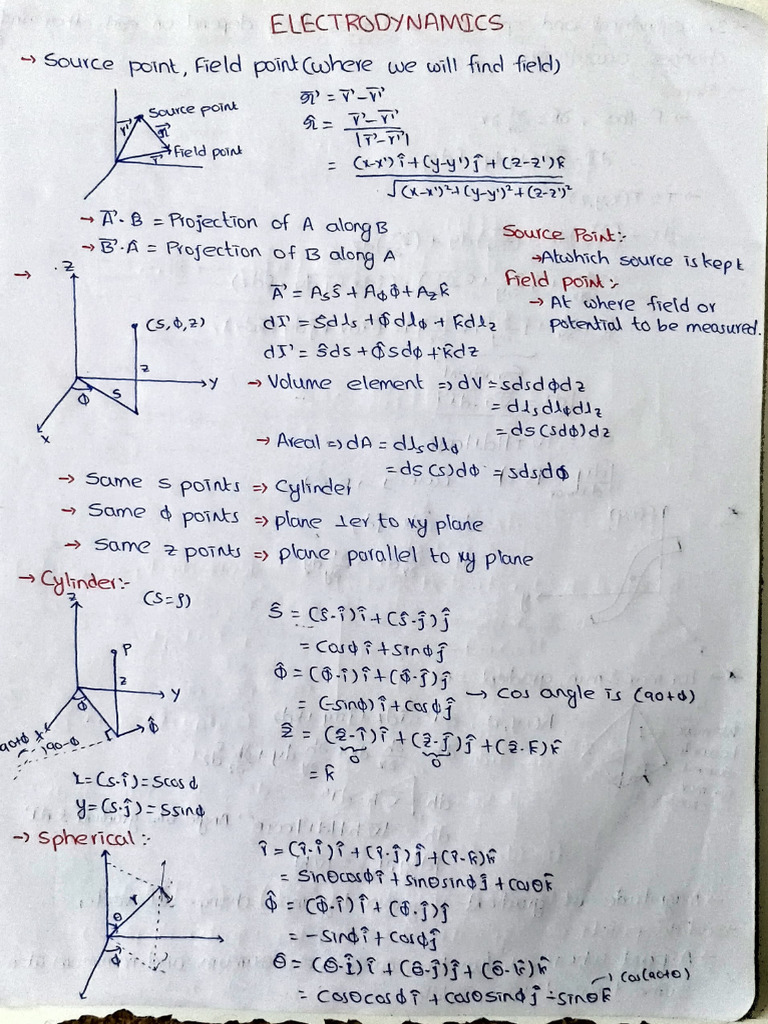 ELECTRODYNAMICS
→ Source point, Field point (where we will find field)
Source point
Field point
r⃗'
r⃗
𝓇⃗
𝓇⃗ = r⃗ - r⃗'
𝓇̂ = (r⃗ - r⃗') / |r⃗ - r⃗'|
= ((x-x')î + (y-y')ĵ + (z-z')k̂) / √((x-x')²+(y-y')²+(z-z')²)
→ A⃗·B = Projection of A along B
→ B⃗·A = Projection of B along A
Source Point:-
→ At which source is kept
Field point:-
→ At where field or
potential to be measured.
→ z
(s, ϕ, z)
z
y
ϕ
s
x
A⃗ = Asŝ + Aϕϕ̂ + Azk̂
dl⃗ = ŝdls + ϕ̂dlϕ + k̂dlz
dl⃗ = ŝds + ϕ̂sdϕ + k̂dz
→ Volume element ⇒ dV = sdsdϕdz
= dlsdlϕdlz
= ds(sdϕ)dz
→ Areal ⇒ dA = dlsdlϕ
= ds(s)dϕ = sdsdϕ
→ Same s points ⇒ Cylinder
→ Same ϕ points ⇒ plane ⊥er to xy plane
→ Same z points ⇒ plane parallel to xy plane
→ Cylinder:-
(S=ρ)
z
P
z
y
ϕ
ϕ̂
x
90+ϕ
90-ϕ
x = (s·î) = scosϕ
y = (s·ĵ) = ssinϕ
ŝ = (ŝ·î)î + (ŝ·ĵ)ĵ
= cosϕî + sinϕĵ
ϕ̂ = (ϕ̂·î)î + (ϕ̂·ĵ)ĵ
→ cos angle is (90+ϕ)
= (-sinϕ)î + cosϕĵ
ẑ = (ẑ·î)î + (ẑ·ĵ)ĵ + (ẑ·k̂)k̂
0 0
= k̂
→ Spherical:-
r
θ
ϕ
r̂ = (r̂·î)î + (r̂·ĵ)ĵ + (r̂·k̂)k̂
= sinθcosϕî + sinθsinϕĵ + cosθk̂
ϕ̂ = (ϕ̂·î)î + (ϕ̂·ĵ)ĵ
= -sinϕî + cosϕĵ
θ̂ = (θ̂·î)î + (θ̂·ĵ)ĵ + (θ̂·k̂)k̂
→ cos(90+θ)
= cosθcosϕî + cosθsinϕĵ - sinθk̂